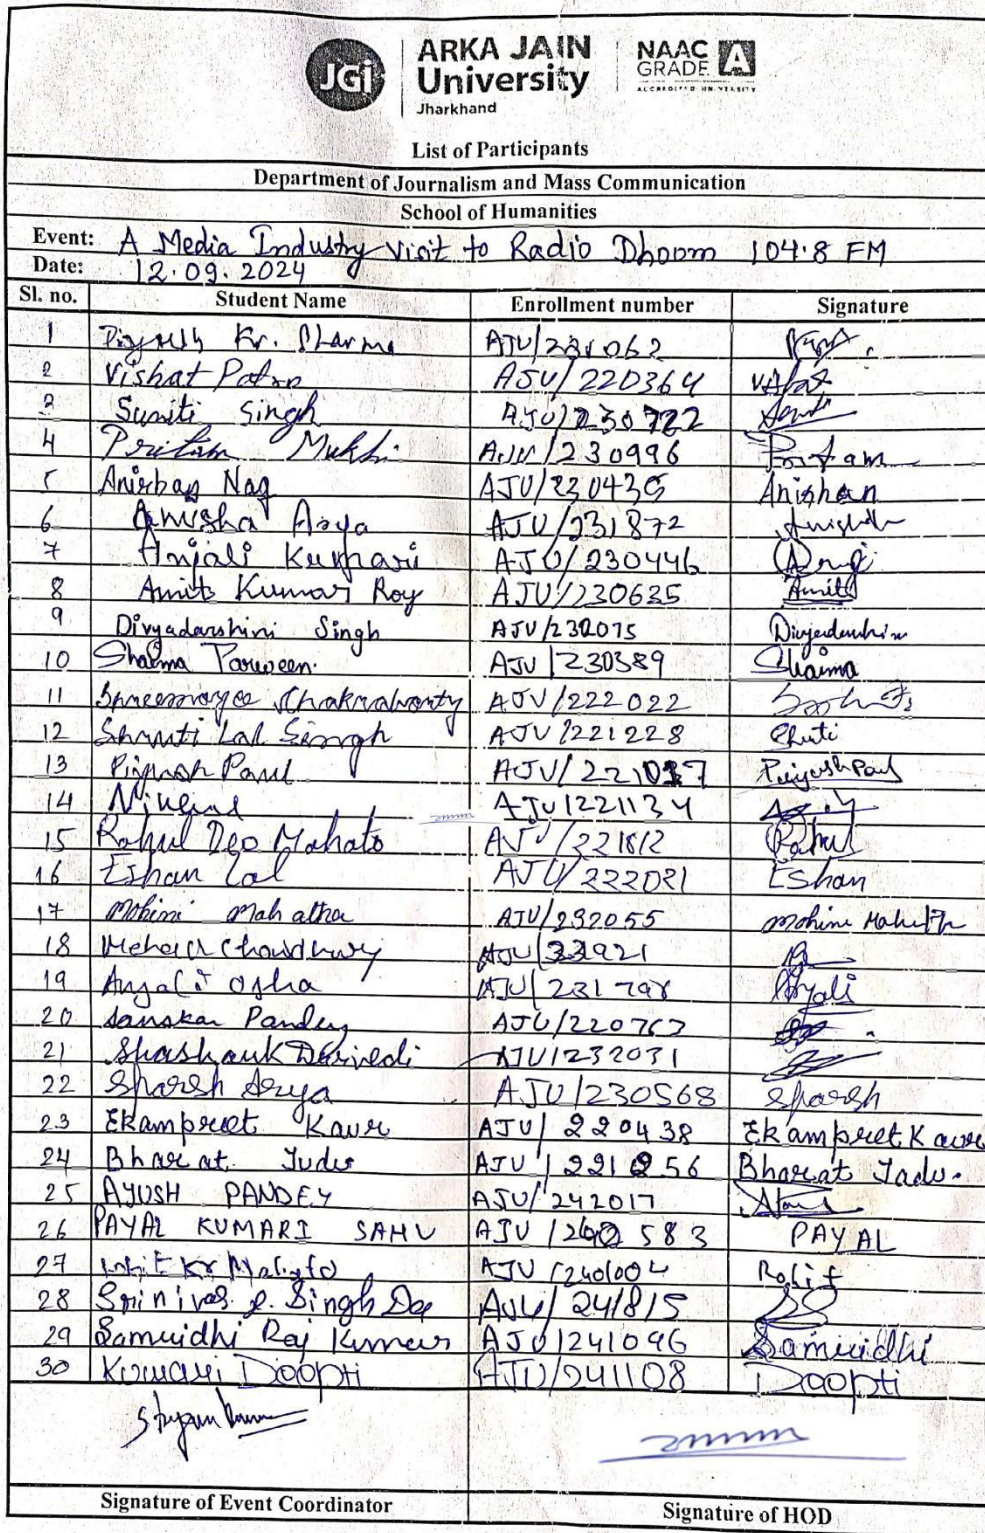 JGi
ARKA JAIN
University
Jharkhand
NAAC
GRADE A
ACCREDITED UNIVERSITY
List of Participants
Department of Journalism and Mass Communication
School of Humanities
Event: A Media Industry Visit to Radio Dhoom 104.8 FM
Date: 12.09.2024
Sl. no. Student Name Enrollment number Signature
1 Kr. Sharma AJU/231062
2 AJU/220364
3 Suniti Singh AJU/230722
4 Pritam Mukhi AJU/230996 Pritam
5 Anirban Nag AJU/230435 Anirban
6 Anusha Arya AJU/231872
7 Anjali Kumari AJU/230446
8 Amit Kumar Roy AJU/230635 Amit
9 Divyadarshini Singh AJU/232075 Divyadarshini
10 Shaima Parween. AJU/230389 Shaima
11 Chakraborty AJU/222022
12 Shruti Lal Singh AJU/221228
13 Paul AJU/221037 Piyush Paul
14 AJU/221134
15 Rahul Deo Mahato AJU/221812 Rahul
16 Eshan Lal AJU/222021 Eshan
17 Mohini Mahatha AJU/232055 Mohini
18 Chowdhury AJU/
19 Anjali Ojha AJU/231798 Anjali
20 Sanskar Pandey AJU/220767
21 Shashank AJU/232031
22 Sparsh Arya AJU/230568 Sparsh
23 Ekampreet Kaur AJU/220438 Ekampreet Kaur
24 Bharat Judu AJU/221256 Bharat
25 AYUSH PANDEY AJU/242017
26 PAYAL KUMARI SAHU AJU/ PAYAL
27 Kr AJU/241004
28 Singh Deo AJU/241815
29 Samridhi Raj Kumar AJU/241096 Samridhi
30 Kumari Doopti AJU/241108 Doopti
Signature of Event Coordinator Signature of HOD